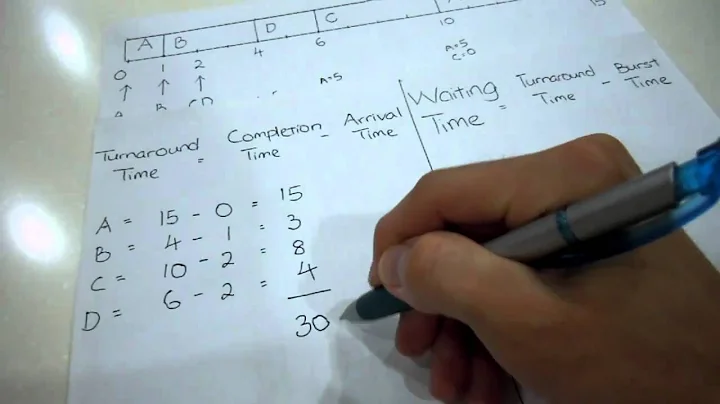 A B D C
0 1 2 4 6 10 15
A=5
A=5
C=0
Turnaround Time = Completion Time - Arrival Time
Waiting Time = Turnaround Time - Burst Time
A = 15 - 0 = 15
B = 4 - 1 = 3
C = 10 - 2 = 8
D = 6 - 2 = 4
30